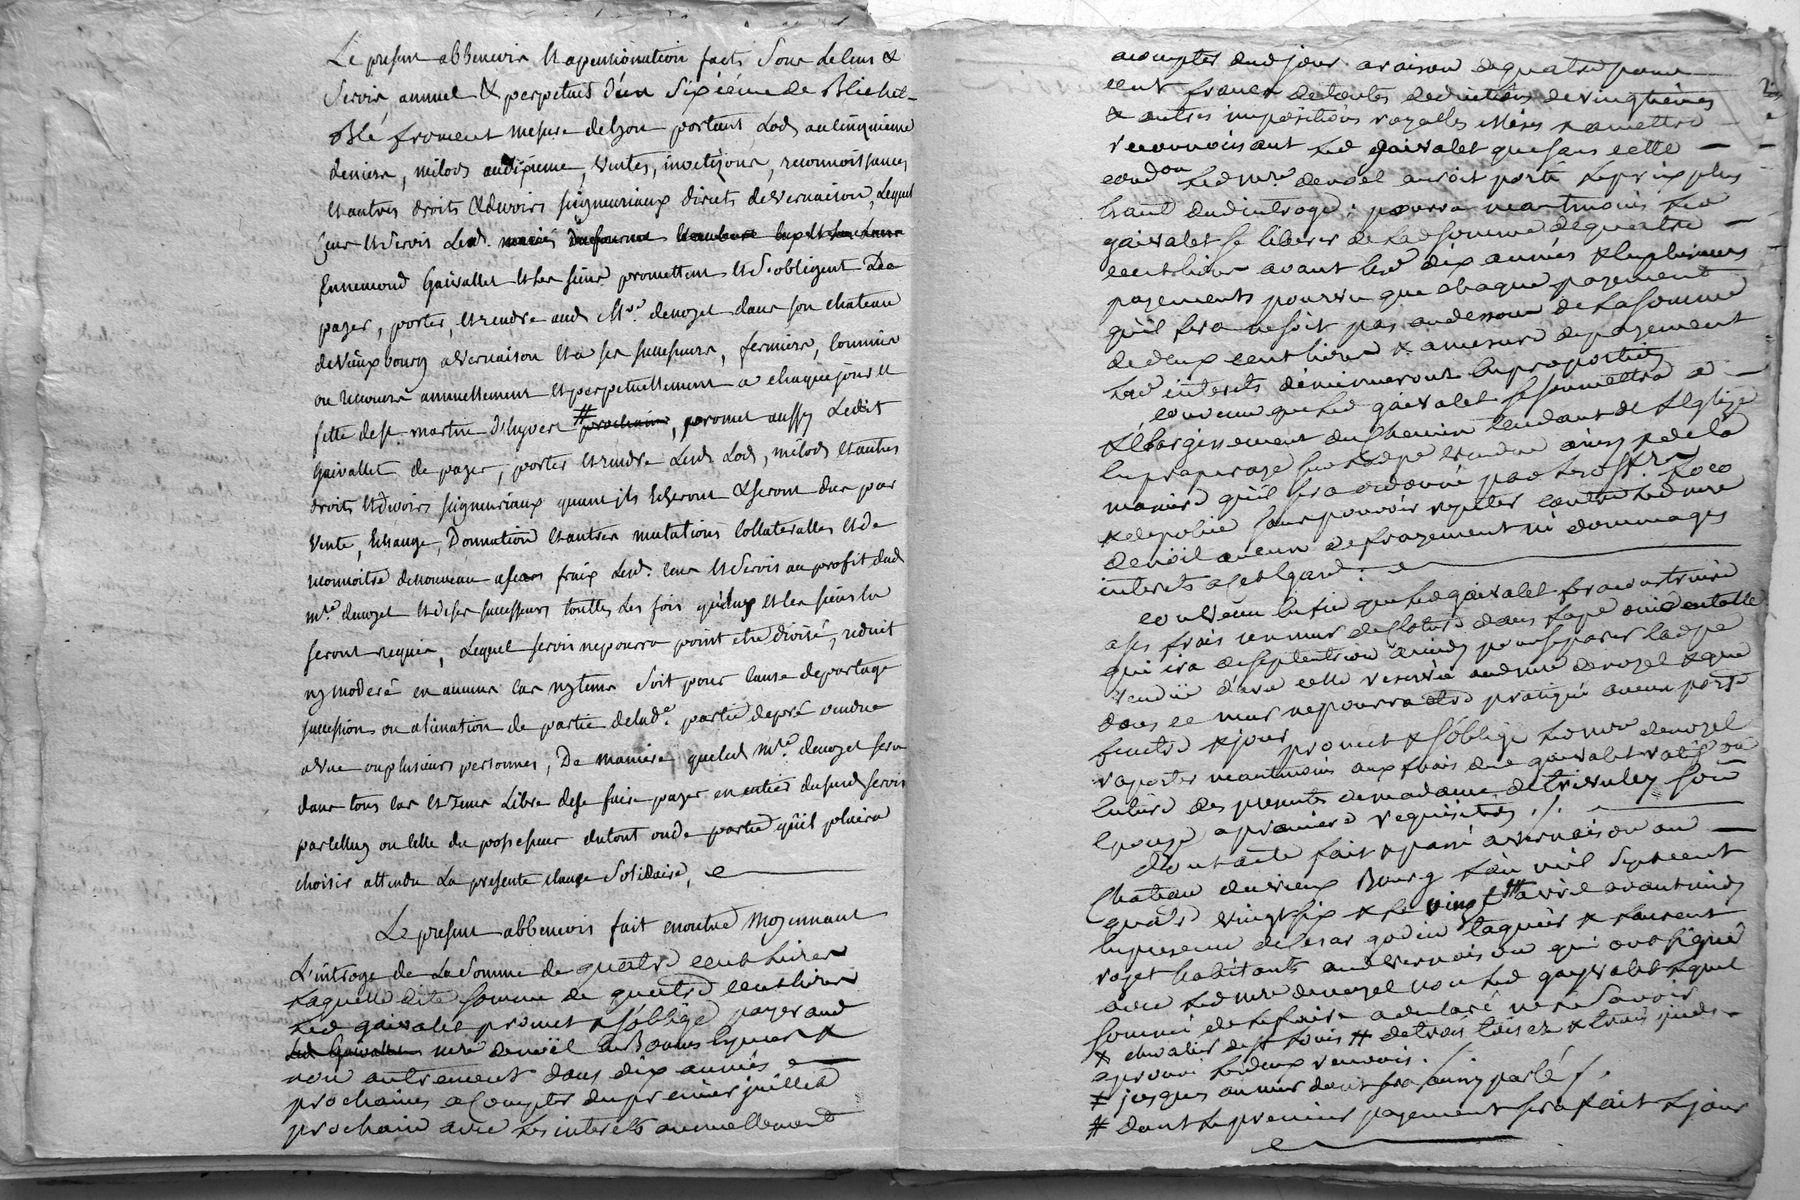 Le present abbenevis et apentionnation faits sous le cens &
servis annuel & perpetuel d'un sixiéme de Bichet
Blé froment mesure de lyon portant Lods au cinquieme
denier, milods au dixieme, ventes, investizons, reconnoissances
et autres droits et devoirs seigneuriaux directs de vernaison, Lequel
cens et servis Led.
Ennemond Gaivallet et les siens promettent et s'obligent De
payer, porter, et rendre aud. Mre. denozel dans son chateau
de vieuxbourg a vernaison et a ses successeurs, fermiers, commis
ou receveurs annuellement et perpetuellement a chaque jour et
fette de st. martin d'hyver # prochaine, promet aussy Ledit
Gaivallet de payer, porter et rendre Lesd. Lods, milods et autres
droits et devoirs seigneuriaux quant ils Echeront & seront dus par
vente, Echange, Donnation et autres mutations collateralles et de
reconnoitre denouveau a ses frais Lesd. cens et servis au profit dud.
mre. denozel et de ses successeurs touttes Les fois qu'eux et les siens en
seront requis, Lequel servis ne pourra point etre divisé, reduit
ny moderé en aucun cas ny tems soit pour cause de partage
succession ou alienation de partie de lad. partie de pré vendue
a une ou plusieurs personnes, De maniere que led. mre. denozel sera
dans tous cas et Tems Libre de se faire payer en entier dususd. servis
par celluy ou celle du possesseur du tout ou de partie qu'il plaira
choisir attendu La presente clause Solidaire,
Le present abbenevis fait en outre Moyennant
L'introge de La somme de quatre cent livres
Laquelle dite somme de quatre cent livres
Led gaivalet promet & s'oblige payer aud
Led Gaivallet mre denoël en Bonnes Espèces &
non autrement dans dix années
prochaines a Compter du premier juillet
prochain avec Les interets annuellement
a compter dud jour a raison de quatre pour
cent francs de toutes deductions de vingtiemes
& autres impositions royalles mises & a mettre
reconnoissant Led gaivalet que sans cette
condon Led mre. denoel auroit porté Le prix plus
haut dud introge; pourra neantmoins Led
gaivalet se liberer de Lad somme de quatre
cent livres avant lesd dix années & en plusieurs
payements pourvu que chaque payement
qu'il fera ne soit pas au dessous de La somme
de deux cent livres & a mesure de payement
Les interets diminueront en proportion
convenu que Led gaivalet se soumettra a
L'Elargissement du chemin tendant de L'Eglise
sur Lad pe vendue ainsy & de la
maniere qu'il sera ordonné par Les offrs
& de police sans pouvoir repeter contre Led mre
denoël aucun defrayement ni dommages
interets a cet Egard:
convenu enfin que Led gaivalet fera construire
a ses frais un mur de cloture dans La pe occidentalle
qui ira de septentrion a midy pour separer Lad pe
vendüe d'avec celle reservée aud mre denozel & que
dans ce mur ne pourra etre pratiqué aucun porte
fenetre & jour promet & s'oblige Led mre denozel
raporter neantmoins aux frais du gaivalet
des presentes de madame de trevuley son
epouse a premiere requisition.
Dont acte fait & passé a vernaison au
Chateau du vieux Bourg L'an mil sept cent
quatre vingt six & Le vingt avril avant midy
en presence de Cesar godin & Laurent
rozet habitants aud vernaison qui ont signé
avec Led mre denozel non Led gayvalet Lequel
sommé de Le faire a declaré ne Le savoir
& chevalier de st Louis # de trois toises & trois pieds
aprouvé Les deux renvois.
# jusques au mur dont sera ainsy parlé
# dont Le premier payement sera fait Le jour